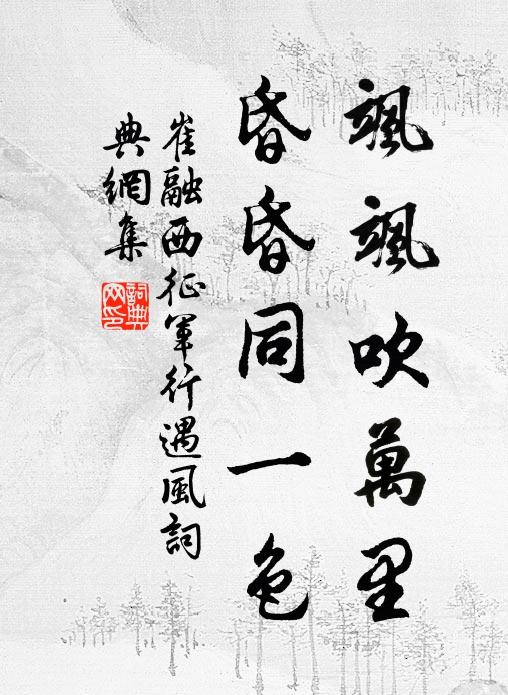 颯颯吹萬里
昏昏同一色
崔融西征軍行遇風詞
典網集
詞典网印